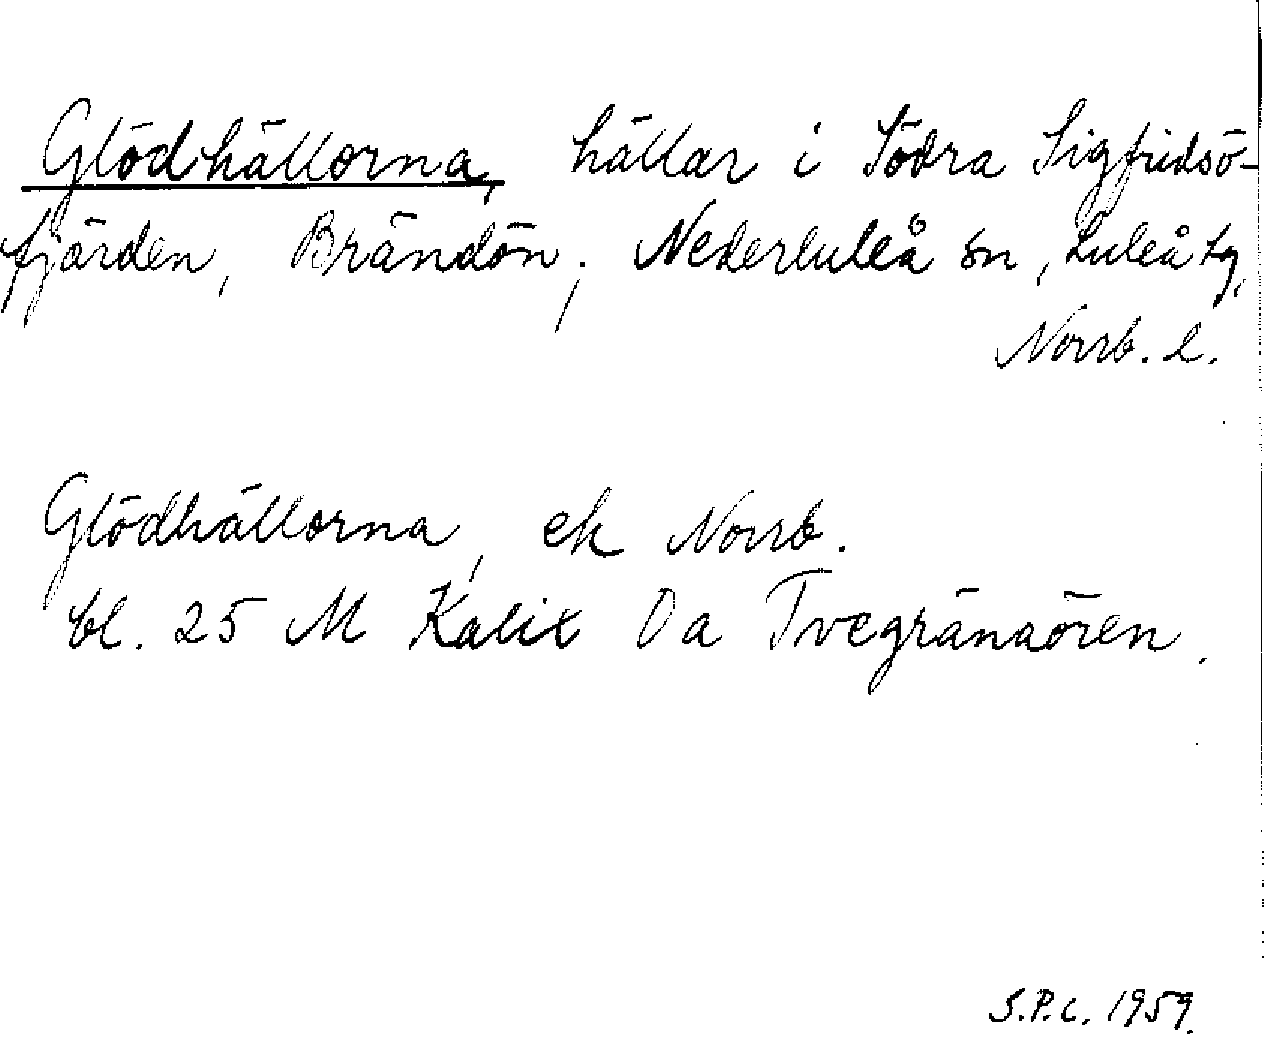 Glödhällorna, hällar i Södra Sigfridsö-
fjärden, Brändön, Nederluleå sn, Luleå tg,
Norrb. l.
Glödhällorna, ek Norrb.
bl. 25 M Kalix Da Tvegränaören.
S.P.C. 1959.